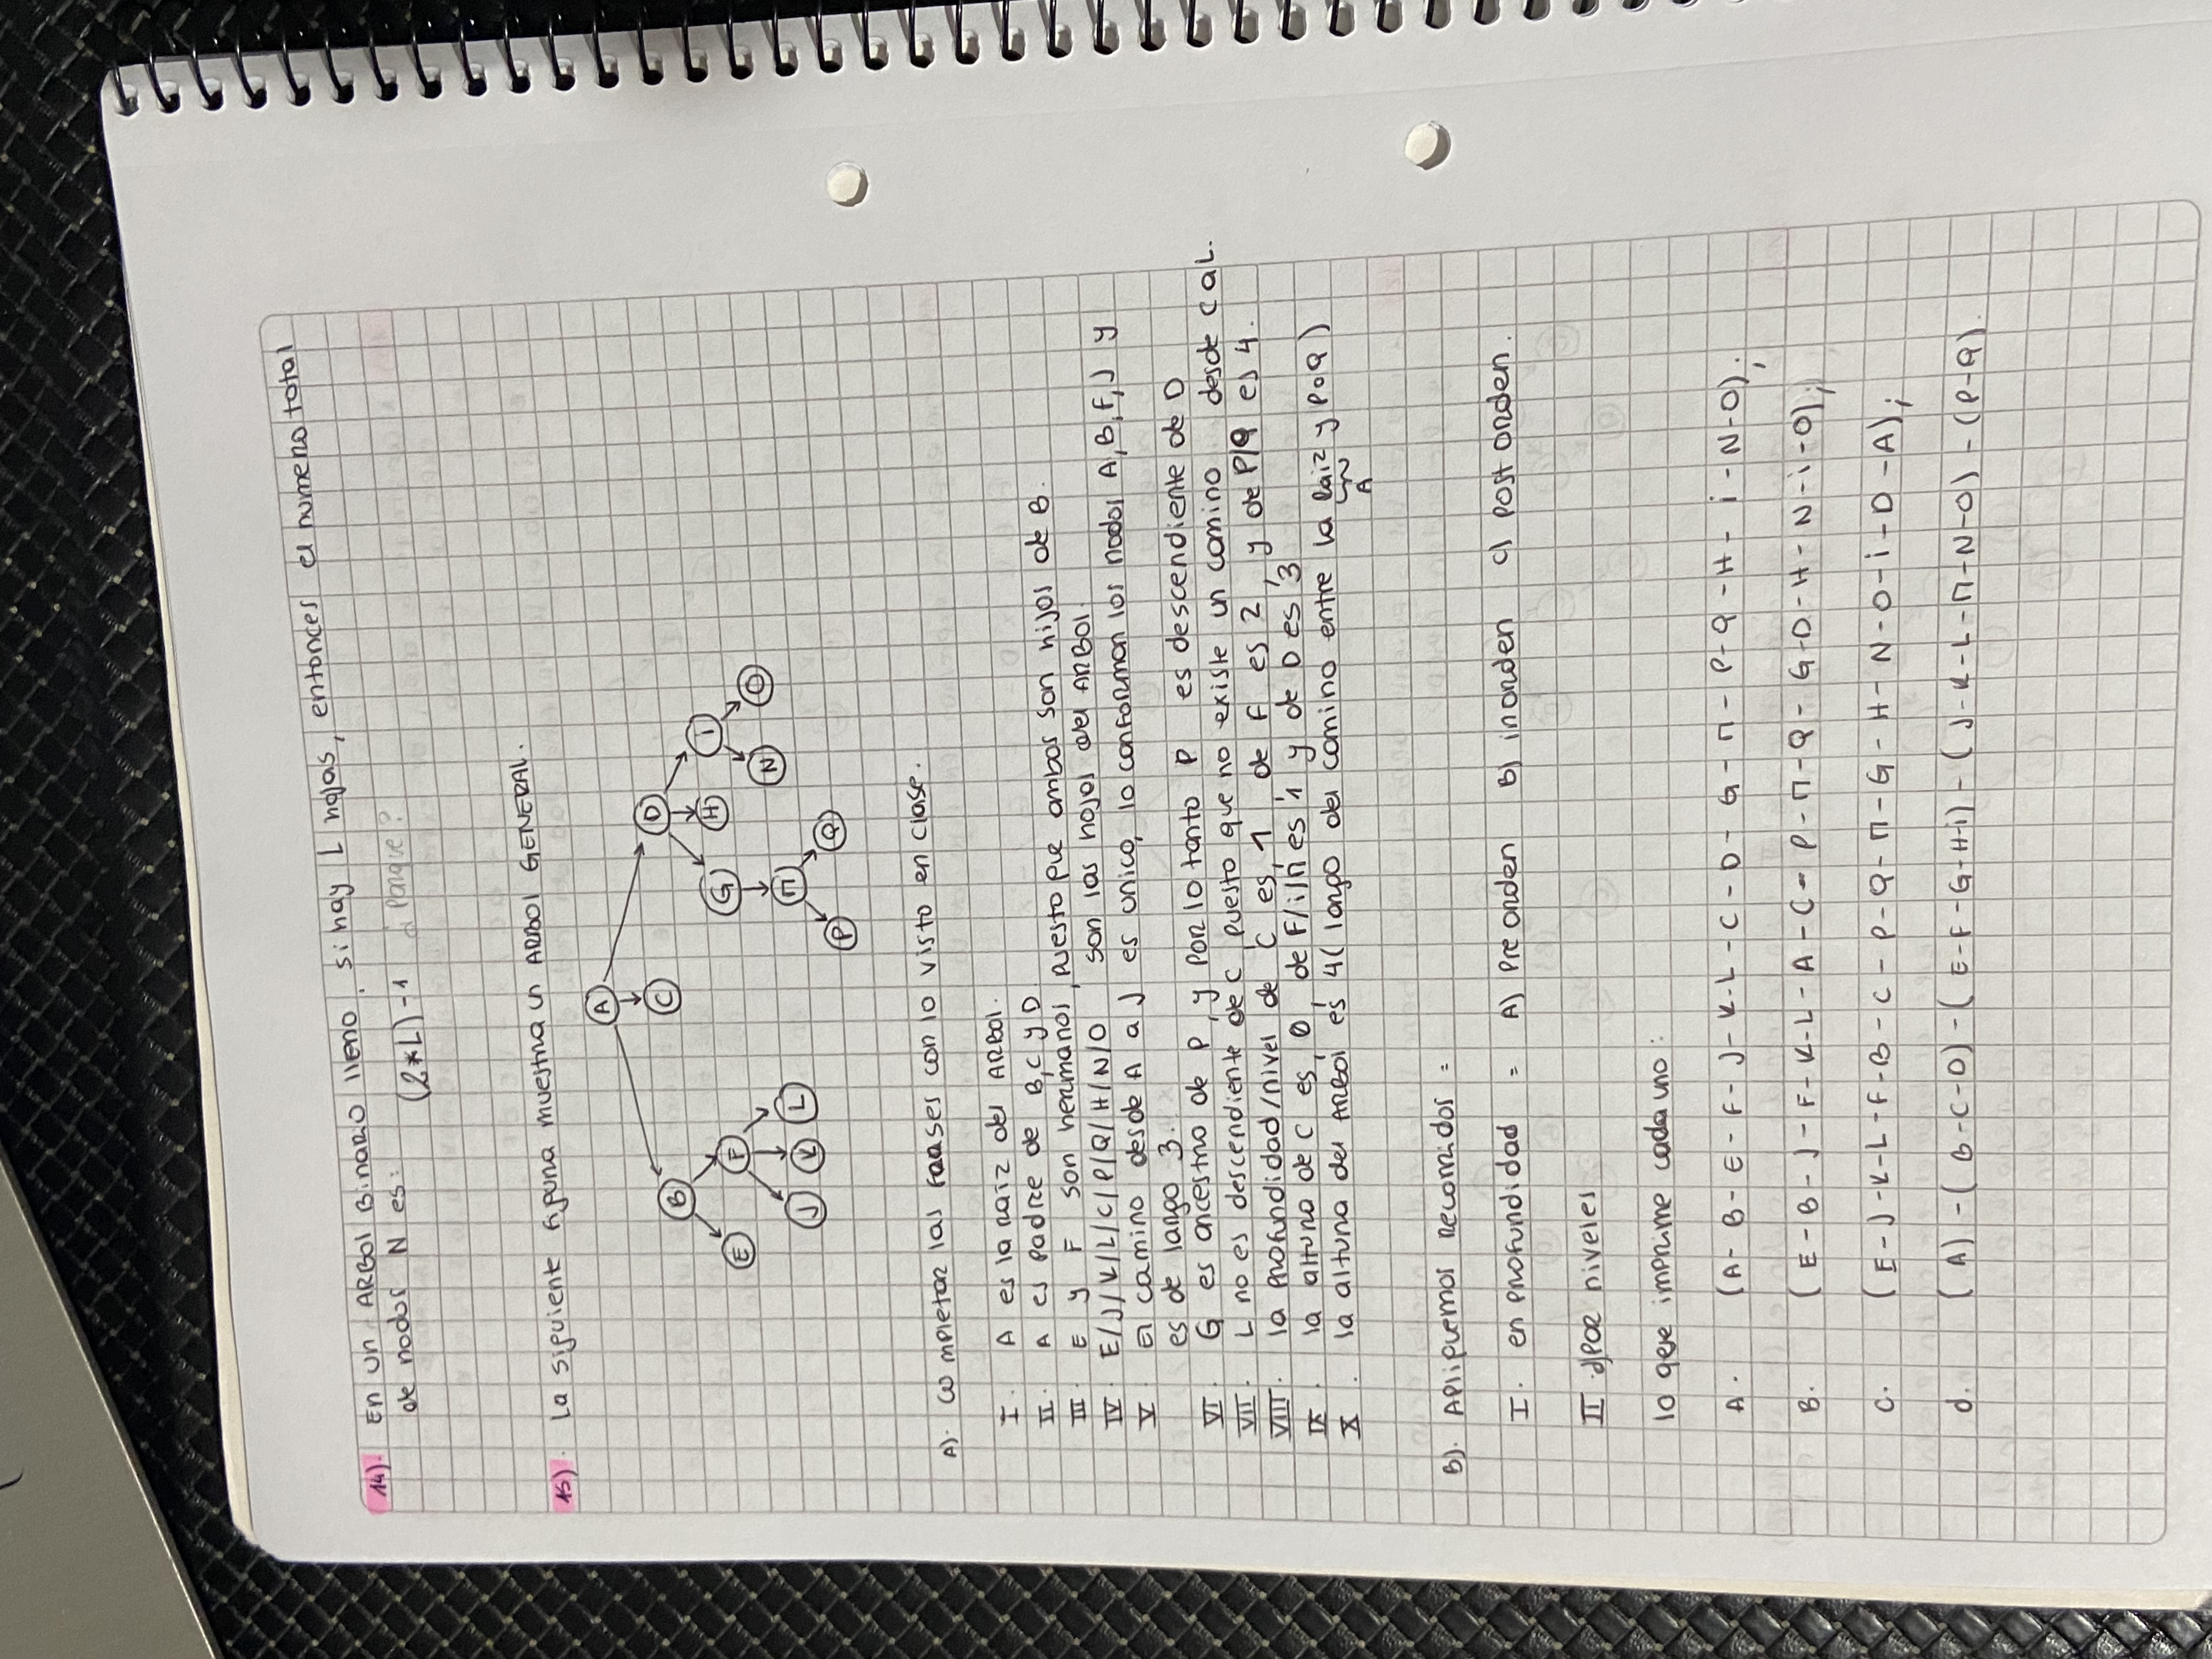 14). En un ARBOL Binario lleno, si hay L hojas, entonces el numero total
de nodos N es: (2*L)-1 ¿ Porque?
15). La siguiente figura muestra un ARBOL GENERAL.
A
B C D
E F G H I
J K L M N O
P Q
A). completar las frases con lo visto en clase.
I. A es la raiz del ARBOL.
II. A es padre de B, C y D
III. E y F son hermanos, puesto que ambos son hijos de B.
IV. E/J/K/L/C/P/Q/H/N/O son las hojas del ARBOL
V. El camino desde A a J es unico, lo conforman los nodos A, B, F, J y
es de largo 3.
VI. G es ancestro de P, y por lo tanto P es descendiente de D
VII. L no es descendiente de C, puesto que no existe un camino desde C a L.
VIII. la profundidad/nivel de C es, 1, de F es 2, y de P/Q es 4.
IX. la altura de C es, 0, de F/i/M es 1 y de D es 3
X. la altura del Arbol es 4 ( largo del camino entre la Raiz y P o Q )
A
B). Apliquemos recorridos =
I. en profundidad = A) Pre orden B) inorden c) post orden.
II d) por niveles
lo que imprime cada uno:
A. (A- B - E - F - J - K - L - C - D - G - M - P - Q - H - i - N - O);
B. (E - B - J - F - K - L - A - C - P - M - Q - G - D - H - N - i - O);
C. (E - J - K - L - F - B - C - P - Q - M - G - H - N - O - i - D - A);
d. (A) - (B - C - D) - (E - F - G - H - i) - (J - K - L - M - N - O) - (P - Q).